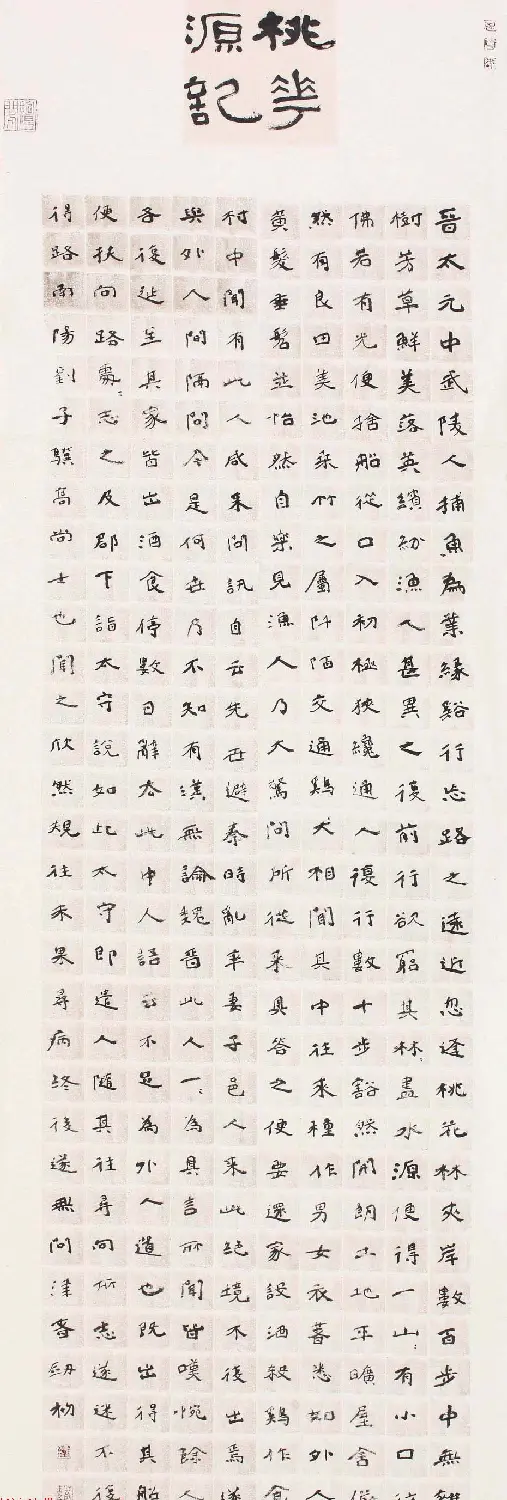 桃花
源記
晉太元中武陵人捕魚為業緣谿行忘路之遠近忽逢桃花林夾岸數百步中無雜
樹芳草鮮美落英繽紛漁人甚異之復前行欲窮其林〻盡水源便得一山〻有小口彷
佛若有光便捨船從口入初極狹纔通人復行數十步豁然開朗土地平曠屋舍儼
然有良田美池桑竹之屬阡陌交通鷄犬相聞其中往來種作男女衣著悉如外人
黃髮垂髫並怡然自樂見漁人乃大驚問所從來具答之便要還家設酒殺鷄作食
村中聞有此人咸來問訊自云先世避秦時亂率妻子邑人來此絕境不復出焉遂
與外人間隔問今是何世乃不知有漢無論魏晉此人一〻為具言所聞皆嘆惋餘人
各復延至其家皆出酒食停數日辭去此中人語云不足為外人道也既出得其船
便扶向路處〻志之及郡下詣太守說如此太守即遣人隨其往尋向所志遂迷不復
得路南陽劉子驥高尚士也聞之欣然規往未果尋病終後遂無問津者